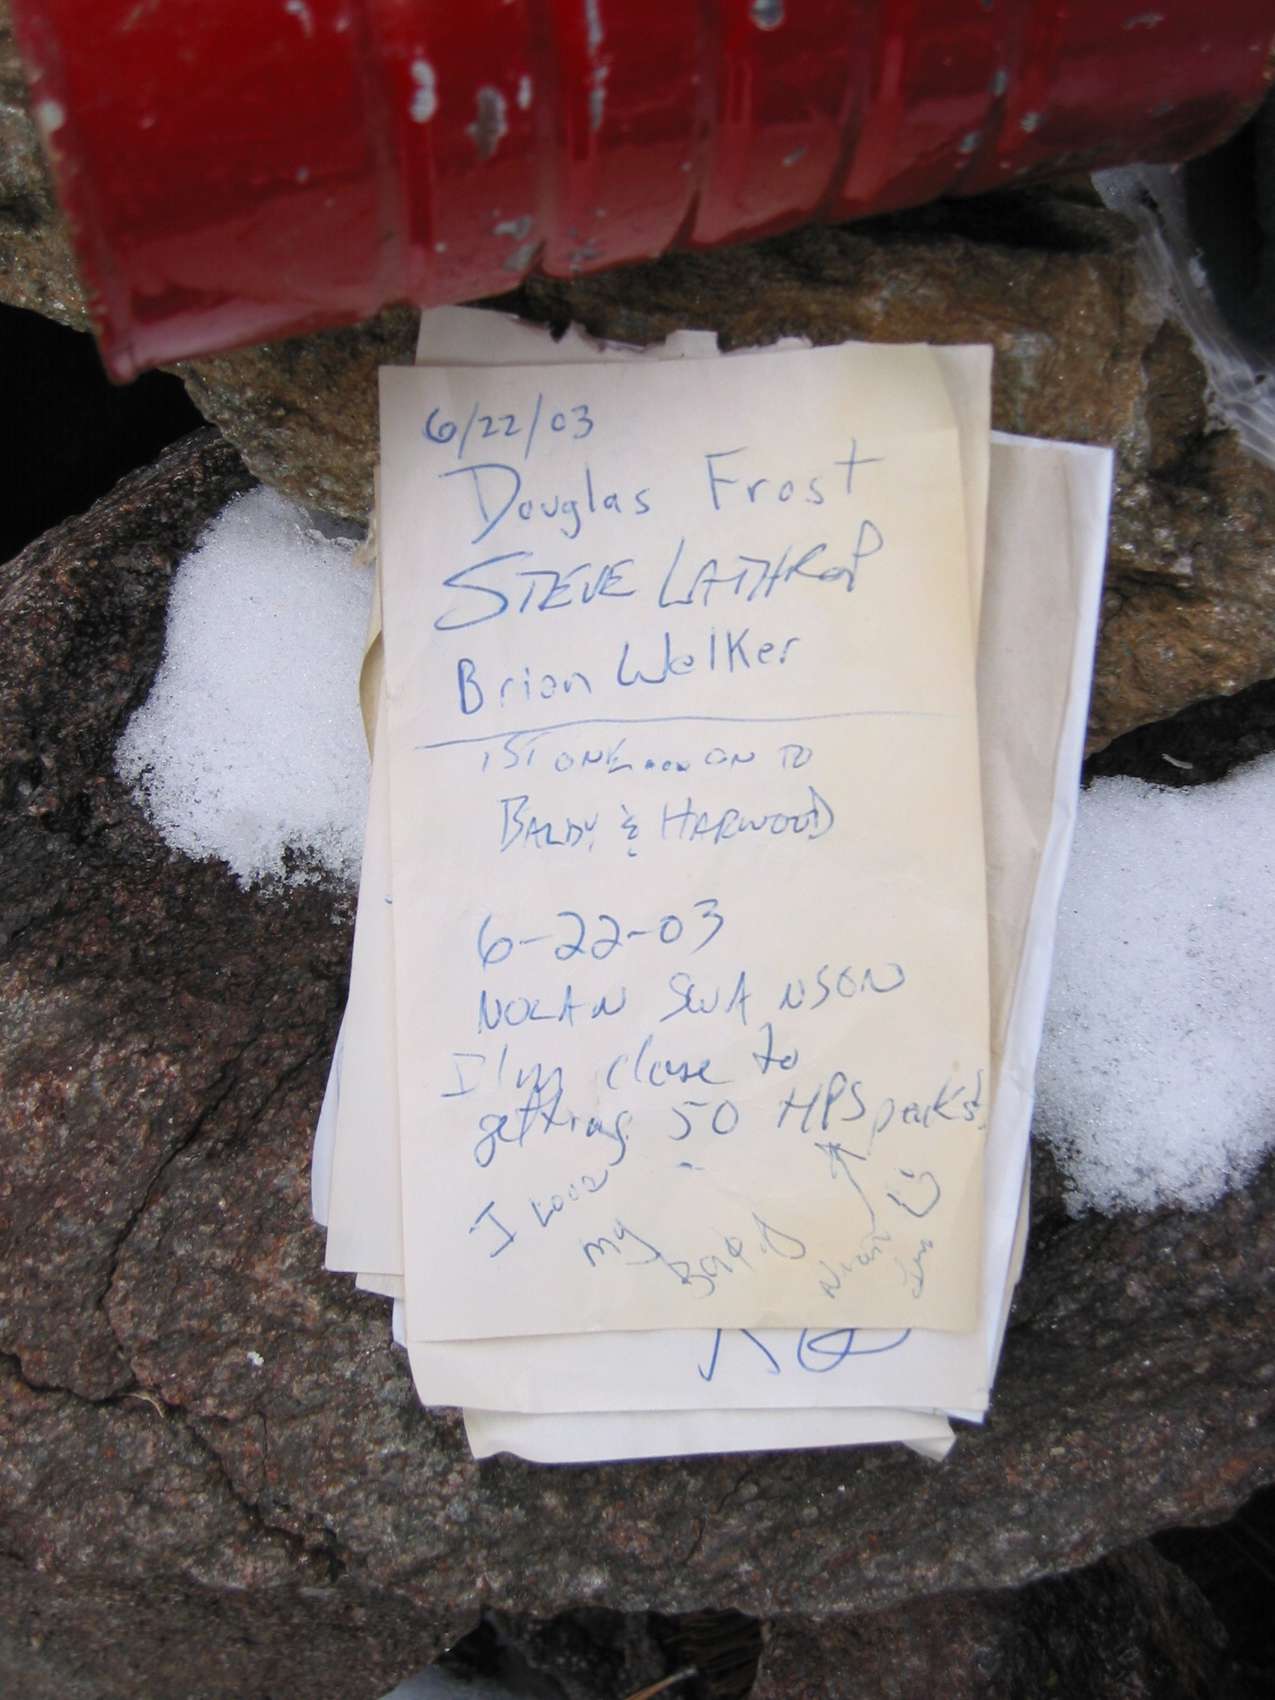 6/22/03
Douglas Frost
STEVE LATHROP
Brian Walker
1ST ONE.... ON TO
BALDY & HARWOOD
6-22-03
NOLAN SWANSON
I'm close to
getting 50 HPS peaks!
I Love
my